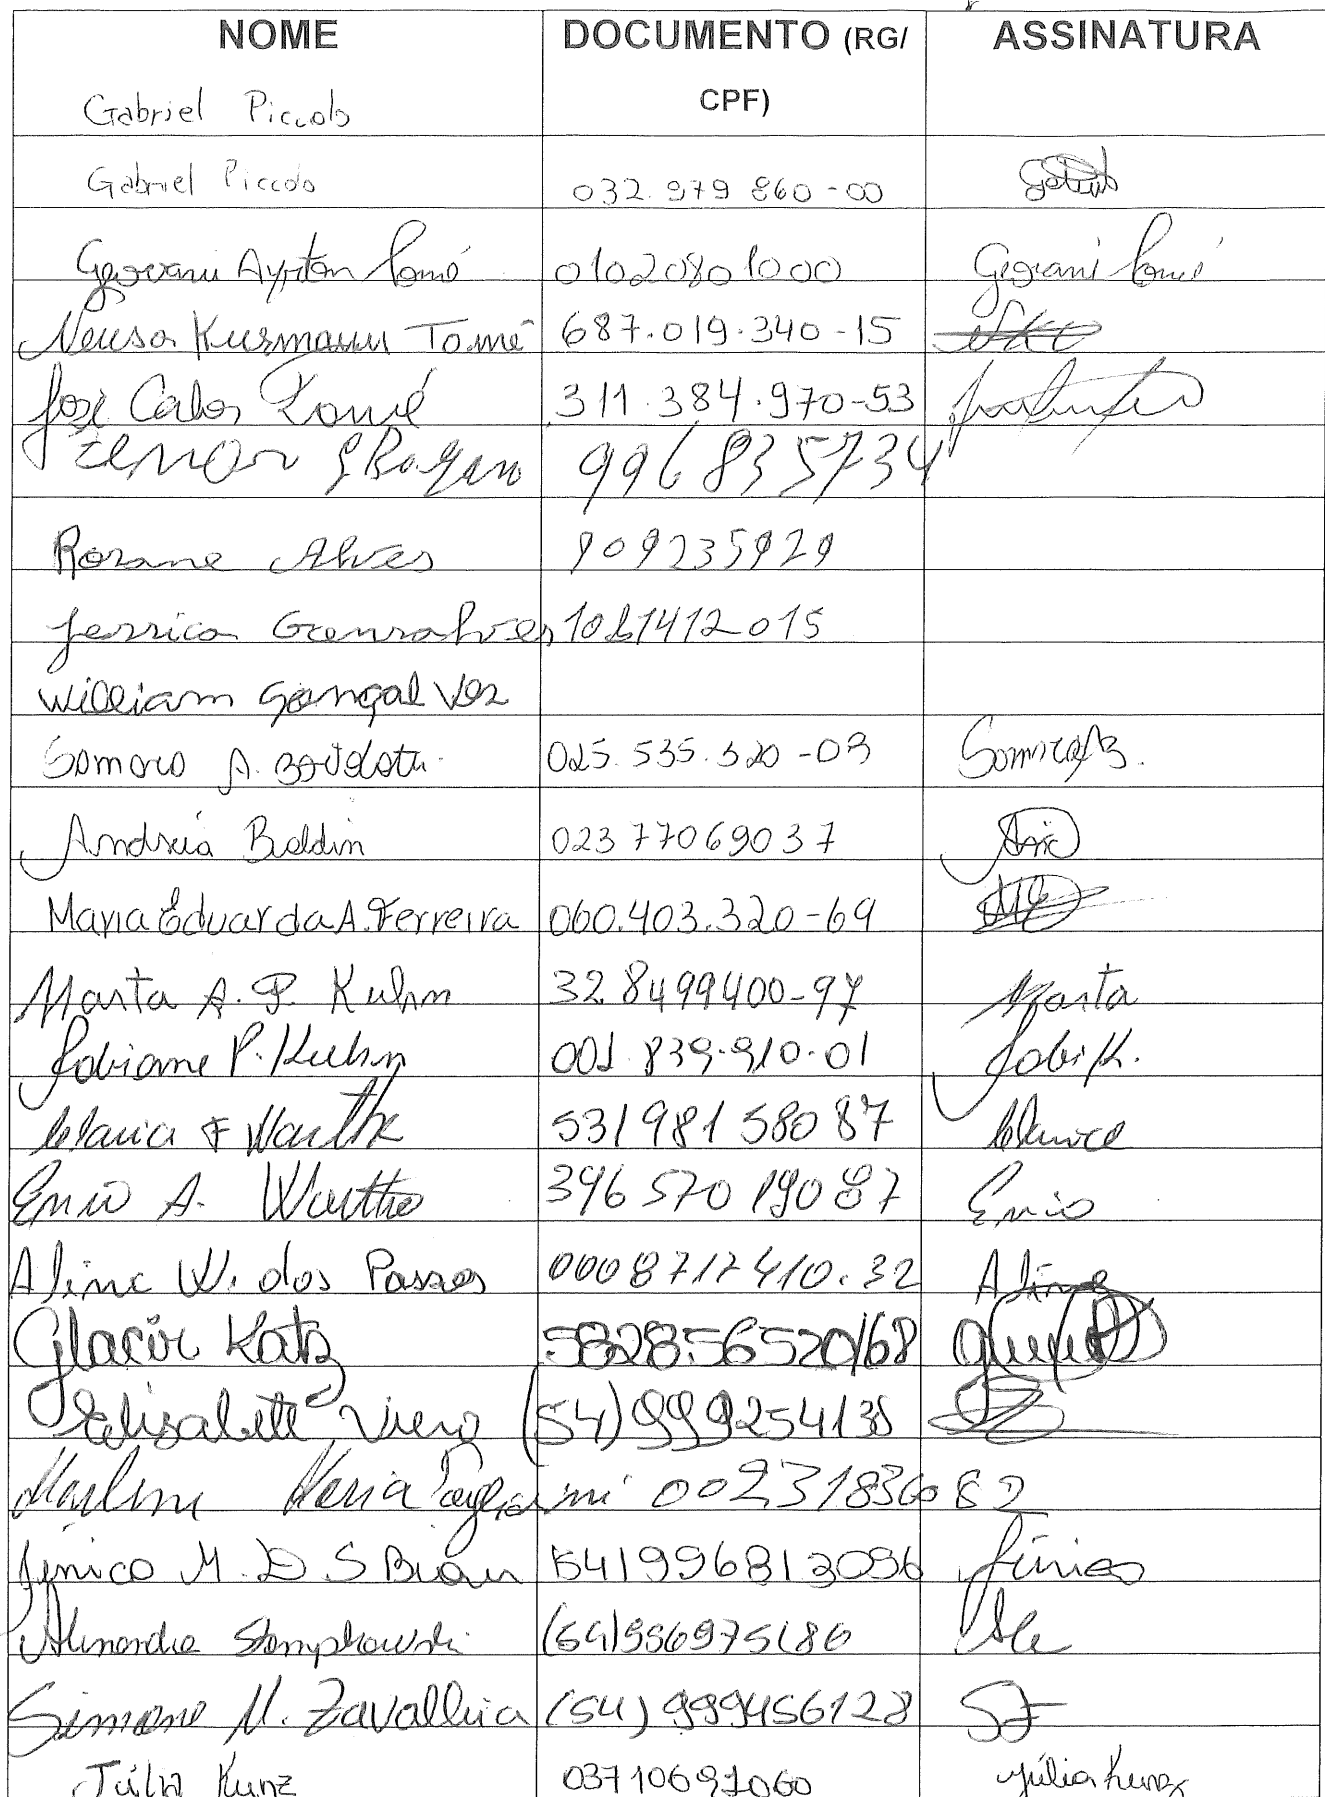 NOME DOCUMENTO (RG/ ASSINATURA
Gabriel Piccolo CPF)
Gabriel Piccolo 032.979 860-00
Geovani Ayrton Tomé 01020801000 Geovani Tomé
Neusa Kuzmann Tomé 687.019.340-15
José Carlos Tomé 311.384.970-53
996835734
Rosane Alves 909235929
Jessica Gonsalves 1081412015
William Gonçalves
A. 025.535.320-03
Andréia Beldin 02377069037
Maria Eduarda A. Ferreira 060.403.320-69
Marta A. P. Kuhn 32.8499400-97 Marta
Fabiane P. Kuhn 001.839.910.01 Fabi K.
F 531981580 87
Enio A. 396 570 190 87 Enio
Aline W. dos Passos 0008717410.32 Aline
Glacir Katz 582856520/68
Elisabete Viero (54)999254138
Maria 00231836082
M. D S 54199681 3096
(54)996975186
Simone M. Zavallia (54) 999456128 SZ
Júlia Kunz 03710697060 Júlia Kunz